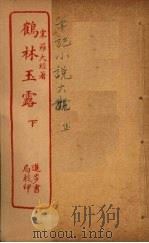 宋羅大經著
鶴林玉露
下
進步書局校印
筆記小說大觀